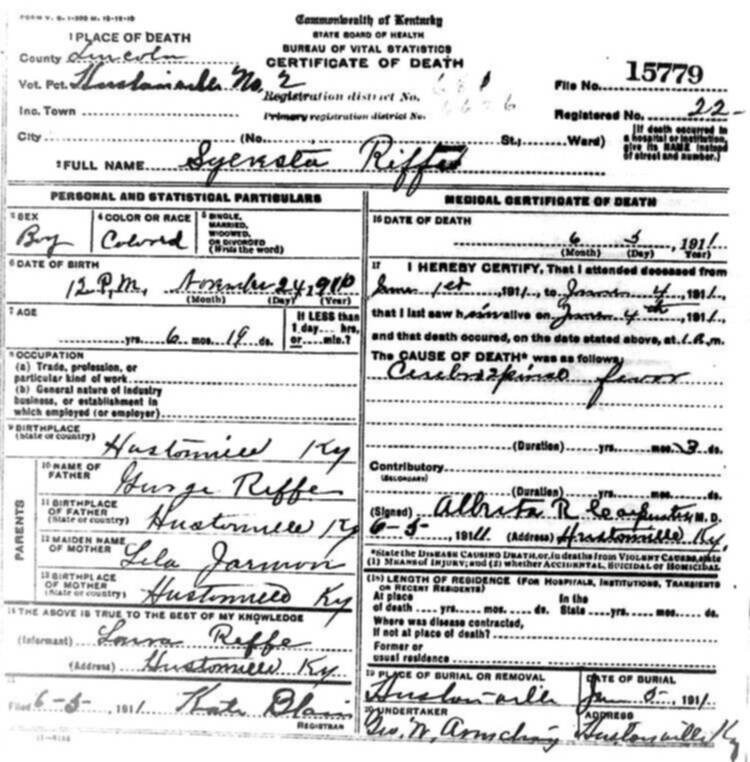 FORM V. S. 1-300 M. 12-12-10
Commonwealth of Kentucky
STATE BOARD OF HEALTH
BUREAU OF VITAL STATISTICS
CERTIFICATE OF DEATH
1 PLACE OF DEATH
County Lincoln
Vot. Pct. Hustonville No. 2
Inc. Town
City (No. St.; Ward)
Registration district No.
Primary registration district No.
File No. 15779
Registered No. 22-
[If death occurred in a hospital or institution, give its NAME instead of street and number.]
2 FULL NAME Sylvesta Riffe
PERSONAL AND STATISTICAL PARTICULARS
3 SEX Boy
4 COLOR OR RACE Colored
5 SINGLE, MARRIED, WIDOWED, OR DIVORCED (Write the word)
6 DATE OF BIRTH
12 P.M. November 24, 1910
(Month) (Day) (Year)
7 AGE
yrs. 6 mos. 19 ds.
If LESS than 1 day hrs. or min.?
8 OCCUPATION
(a) Trade, profession, or particular kind of work
(b) General nature of industry business, or establishment in which employed (or employer)
9 BIRTHPLACE (State or country) Hustonville Ky
PARENTS
10 NAME OF FATHER George Riffe
11 BIRTHPLACE OF FATHER (State or country) Hustonville Ky
12 MAIDEN NAME OF MOTHER Lila Jarmon
13 BIRTHPLACE OF MOTHER (State or country) Hustonville Ky
14 THE ABOVE IS TRUE TO THE BEST OF MY KNOWLEDGE
(Informant) Laura Riffe
(Address) Hustonville Ky
15
Filed 6-5, 1911 Kate Blain
REGISTRAR
11-6184
MEDICAL CERTIFICATE OF DEATH
16 DATE OF DEATH
6 5, 1911
(Month) (Day) Year)
17 I HEREBY CERTIFY, That I attended deceased from
June 1st, 1911, to June 4, 1911,
that I last saw him alive on June 4th, 1911,
and that death occured, on the date stated above, at 1 A.m.
The CAUSE OF DEATH* was as follows,
Cerebrospinal fever
(Duration) yrs. mos. 3 ds.
Contributory
(SECONDARY)
(Duration) yrs. mos. ds.
(Signed) R Carpenter, M. D.
6-5, 1911 (Address) Hustonville Ky.
*State the DISEASE CAUSING DEATH, or, in deaths from VIOLENT CAUSES, state
(1) MEANS OF INJURY; and (2) whether ACCIDENTAL, SUICIDAL or HOMICIDAL
(18) LENGTH OF RESIDENCE (FOR HOSPITALS, INSTITUTIONS, TRANSIENTS OR RECENT RESIDENTS)
At place of death yrs. mos. ds. In the State yrs. mos. ds.
Where was disease contracted,
If not at place of death?
Former or
usual residence
19 PLACE OF BURIAL OR REMOVAL Hustonville
DATE OF BURIAL 5, 1911
20 UNDERTAKER Geo. W. Armstrong
ADDRESS Hustonville Ky